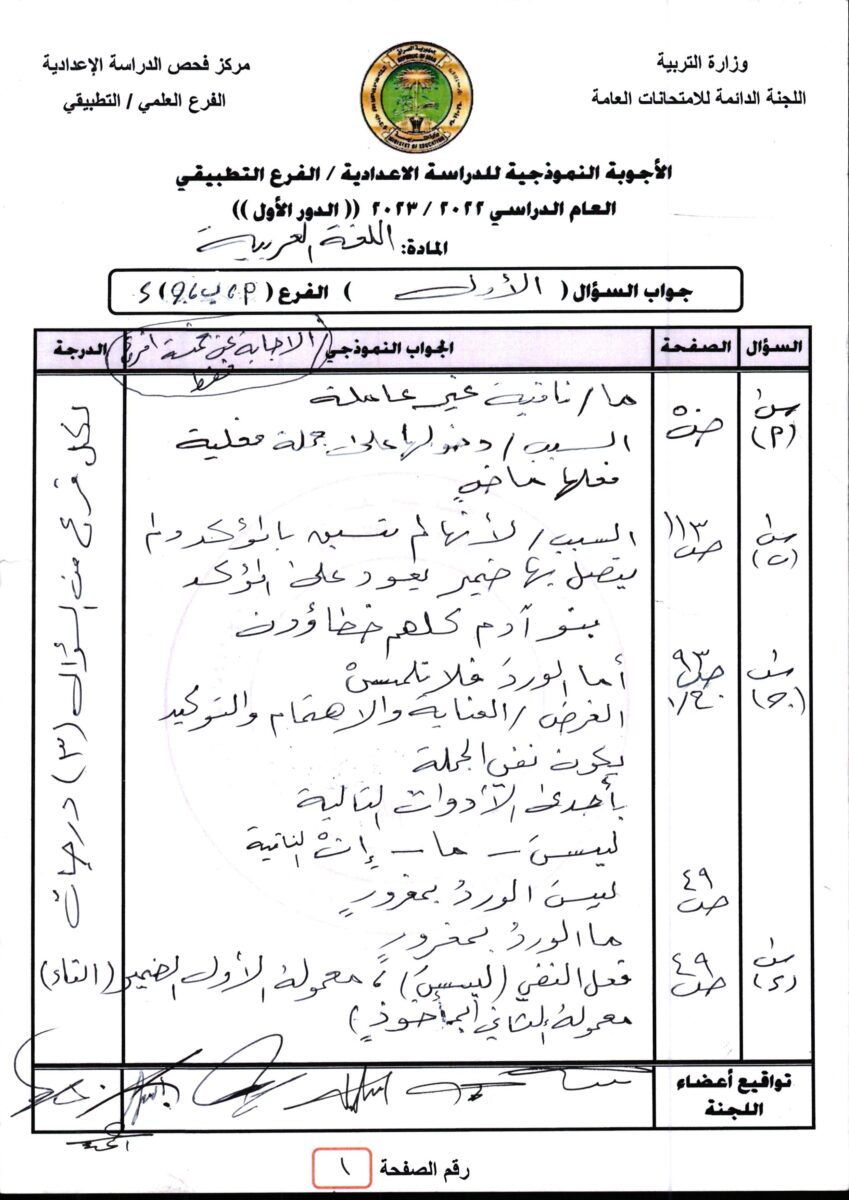 وزارة التربية
اللجنة الدائمة للامتحانات العامة
مركز فحص الدراسة الإعدادية
الفرع العلمي / التطبيقي
جمهورية العراق
REPUBLIC OF IRAQ
MINISTRY OF EDUCATION
الأجوبة النموذجية للدراسة الاعدادية / الفرع التطبيقي
العام الدراسي ٢٠٢٢ / ٢٠٢٣ (( الدور الأول ))
المادة: اللغة العربية
جواب السؤال ( الأول ) الفرع ( أ، ب، جـ، د )
السؤال الصفحة الجواب النموذجي الدرجة
الاجابة عن خمسة أفرع فقط
س١ (أ) ص٥٠ ما / نافية غير عاملة
السبب / دخولها على جملة فعلية
فعلها ماضٍ
س١ (ب) ص١١٣ السبب / لأنها لم تسبق بالمؤكد ولم
يتصل بها ضمير يعود على المؤكد
بنو آدم كلهم خطاؤون
س١ (جـ) ص٩٣ أما الوردَ فلا تلمسْ
الغرض / العناية والاهتمام والتوكيد
يكون نفي الجملة
بأحدى الأدوات التالية
ليسَ - ما - إنْ النافية
ص٤٩ ليسَ الوردُ بمغرورٍ
ما الوردُ بمغرورٍ
س١ (د) ص٤٩ فعل النفي (ليسَ) ، معموله الأول الضمير (التاء)
معموله الثاني (بمأخوذٍ)
لكل فرع من السؤال (٣) درجات
تواقيع أعضاء اللجنة
رقم الصفحة ١